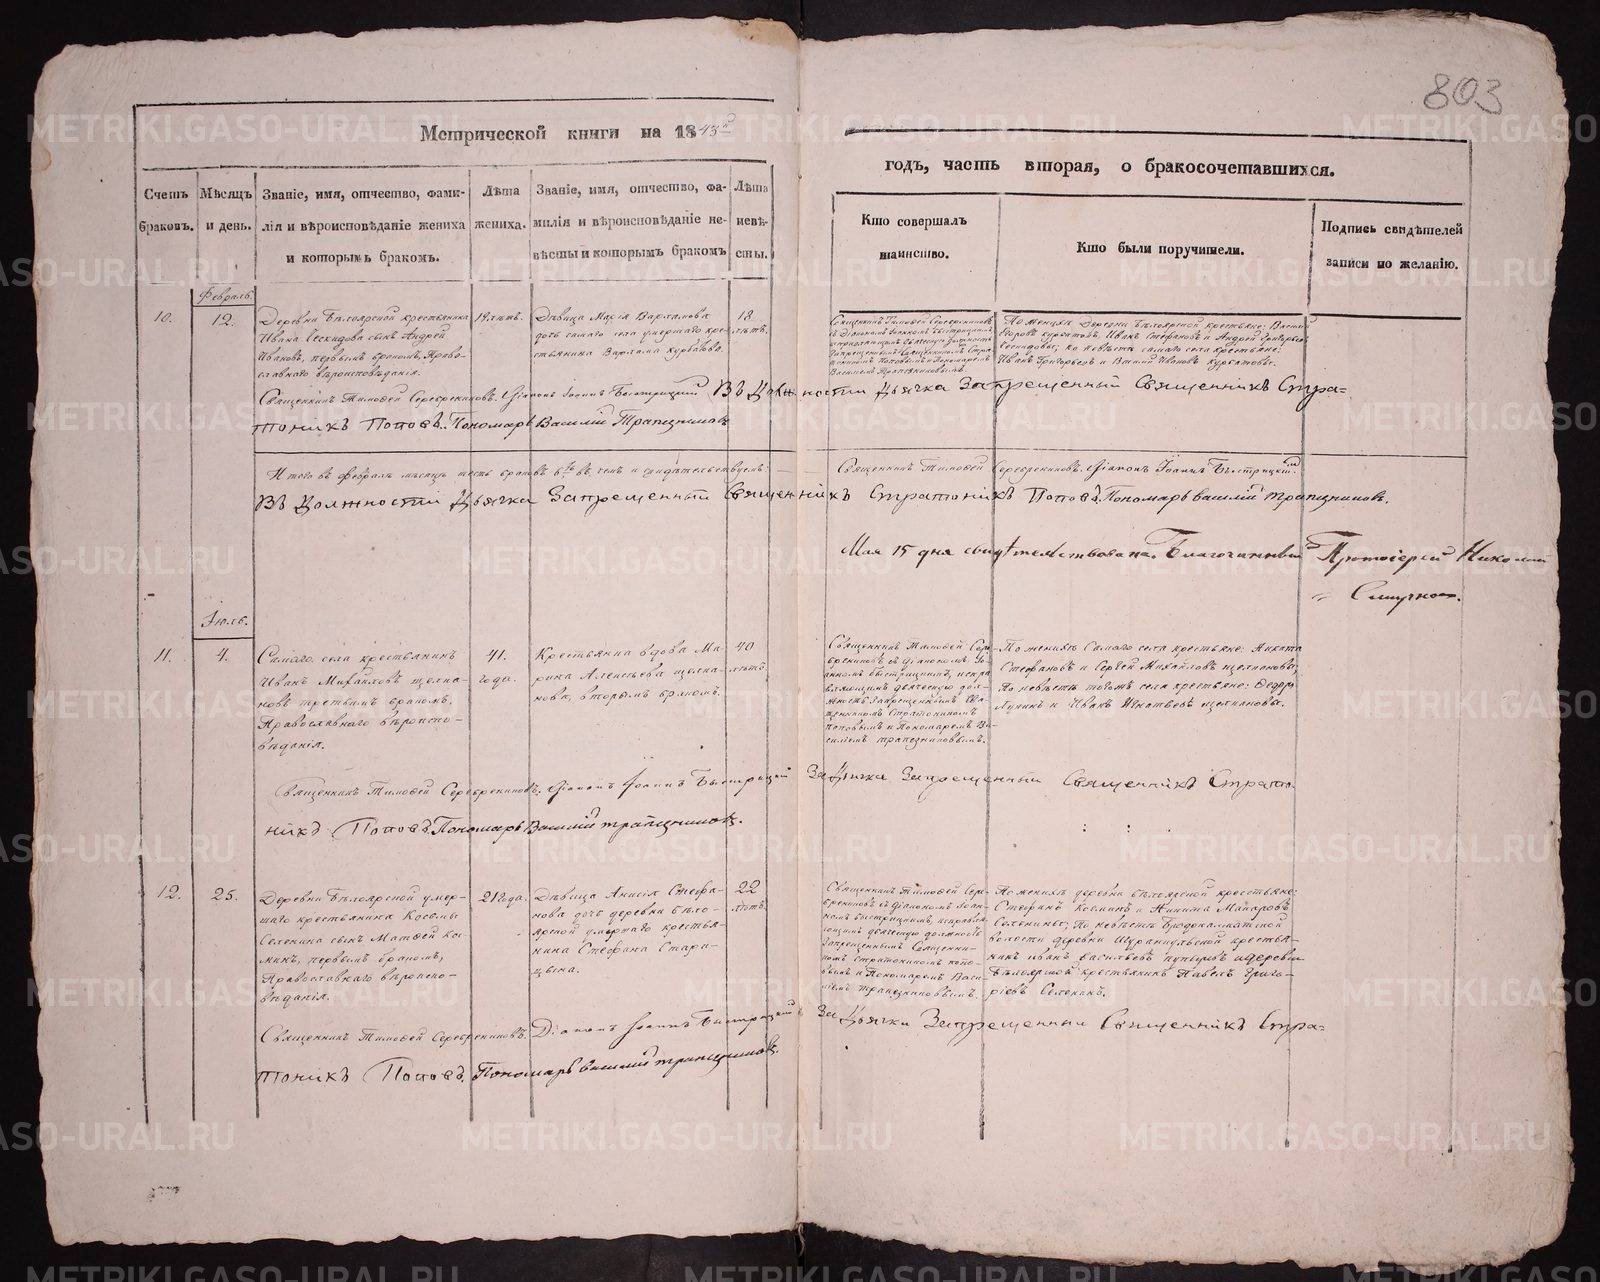 803
Метрической книги на 1843й
годъ, часть вторая, о бракосочетавшихся.
Счетъ браковъ.
Мѣсяцъ и день.
Званіе, имя, отчество, фами-
лія и вѣроисповѣданіе жениха
и которымъ бракомъ.
Лѣта
жениха.
Званіе, имя, отчество, фа-
милія и вѣроисповѣданіе не-
вѣсты и которымъ бракомъ
Лѣта
невѣ-
сты.
Кто совершалъ
таинство.
Кто были поручители.
Подпись свидѣтелей
записи по желанію.
Февраль.
10.
12.
Деревни Бѣлоярской крестьянина
Ивана сынъ Андрей
Ивановъ, первымъ бракомъ, Право-
славнаго вѣроисповѣданія.
19. лѣтъ.
Дѣвица Марія Варламова
дочь самаго села умершаго кре-
стьянина Варлама Курбатова.
18
лѣтъ.
Священникъ Тимофей Серебренниковъ
съ Діакономъ Іоанномъ Быстрицкимъ,
исправляющимъ дьяческую должность
Запрещеннымъ Священникомъ Стра-
тоникомъ Поповымъ и Пономаремъ
Василіемъ Трапезниковымъ.
По женихѣ Деревни Бѣлоярской крестьяне: Василій
Егоровъ Курбатовъ, Иванъ Стефановъ и Андрей Григорьевъ
по невѣстѣ самаго села крестьяне:
Иванъ Григорьевъ и Василій Ивановъ Курбатовы.
Священникъ Тимофей Серебрениковъ. Діаконъ Іоаннъ Быстрицкій Въ Должности Дьячка Запрещенный Священникъ Стра=
тоникъ Поповъ. Пономарь Василій Трапезниковъ
Итого въ Февралѣ мѣсяцѣ шесть браковъ 6. въ чемъ и свидѣтельствуемъ:
Священникъ Тимофей Серебрениковъ. Діаконъ Іоаннъ Быстрицкій
Въ Должности Дьячка Запрещенный Священникъ Стратоникъ Поповъ. Пономарь Василій Трапезниковъ.
Мая 15 дня свидѣтельствовалъ Благочинный Протоіерей Николай
Смирновъ.
Іюль.
11.
4.
Самаго села крестьянинъ
Иванъ Михайловъ Щелка-
новъ третьимъ бракомъ,
Православнаго вѣроиспо-
вѣданія.
41.
года.
Крестьянка вдова Ма-
рина Алексѣева Щелка-
нова, вторымъ бракомъ.
40
лѣтъ.
Священникъ Тимофей Сере-
брениковъ съ Діакономъ Іо-
анномъ Быстрицкимъ, испра
вляющимъ дьяческую дол-
жность Запрещеннымъ Свя-
щенникомъ Стратоникомъ
Поповымъ и Пономаремъ Ва-
силіемъ Трапезниковымъ.
По женихѣ Самаго села крестьяне: Никита
Стефановъ и Сергѣй Михайловъ Щелкановы;
По невѣстѣ тогожъ села крестьяне: Ѳедоръ
и Иванъ Игнатьевъ Щелкановы.
Священникъ Тимофей Серебрениковъ. Діаконъ Іоаннъ Быстрицкій За Дьячка Запрещенный Священникъ Страто-
никъ Поповъ. Пономарь Василій Трапезниковъ.
12.
25.
Деревни Бѣлоярской умер-
шаго крестьянина Космы
Селенина сынъ Матѳей Кос-
минъ, первымъ бракомъ,
Православнаго вѣроиспо-
вѣданія.
21 года.
Дѣвица Анисія Стефа-
нова дочь деревни Бѣло-
ярской умершаго крестья-
нина Стефана Стари-
цына.
22
лѣтъ.
Священникъ Тимофей Сере-
брениковъ съ Діакономъ Іоан-
номъ Быстрицкимъ, исправля-
ющимъ дьяческую должность
Запрещеннымъ Священни-
комъ Стратоникомъ Попо-
вымъ и Пономаремъ Васи-
ліемъ Трапезниковымъ.
По женихѣ деревни Бѣлоярской крестьяне:
Стефанъ Косминъ и Никита Макаровъ
Селенины; По невѣстѣ Бродокалматской
волости деревни крестья-
нинъ Иванъ Васильевъ и деревни
Бѣлоярской крестьянинъ Павелъ Григо-
рьевъ Селенинъ.
Священникъ Тимофей Серебрениковъ. Діаконъ Іоаннъ Быстрицкій За Дьячка Запрещенный Священникъ Стра=
тоникъ Поповъ. Пономарь Василій Трапезниковъ.